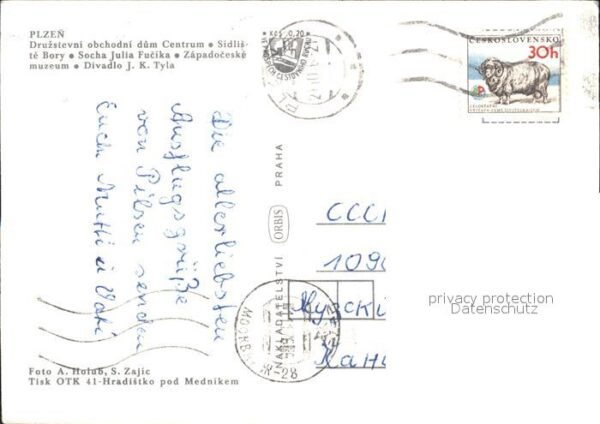 PLZEŇ
Družstevní obchodní dům Centrum • Sídliš-
tě Bory • Socha Julia Fučíka • Západočeské
muzeum • Divadlo J. K. Tyla
Kčs 0,20
ČESKOSLOVENSKO
30h
Die allerliebsten
Ausflugsgrüße
von Pilsen senden
Euch Mutti u Vati
NAKLADATELSTVÍ ORBIS PRAHA
СССР
109
Канн
privacy protection
Datenschutz
МОСКВА
28
Foto A. Holub, S. Zajíc
Tisk OTK 41-Hradištko pod Medníkem